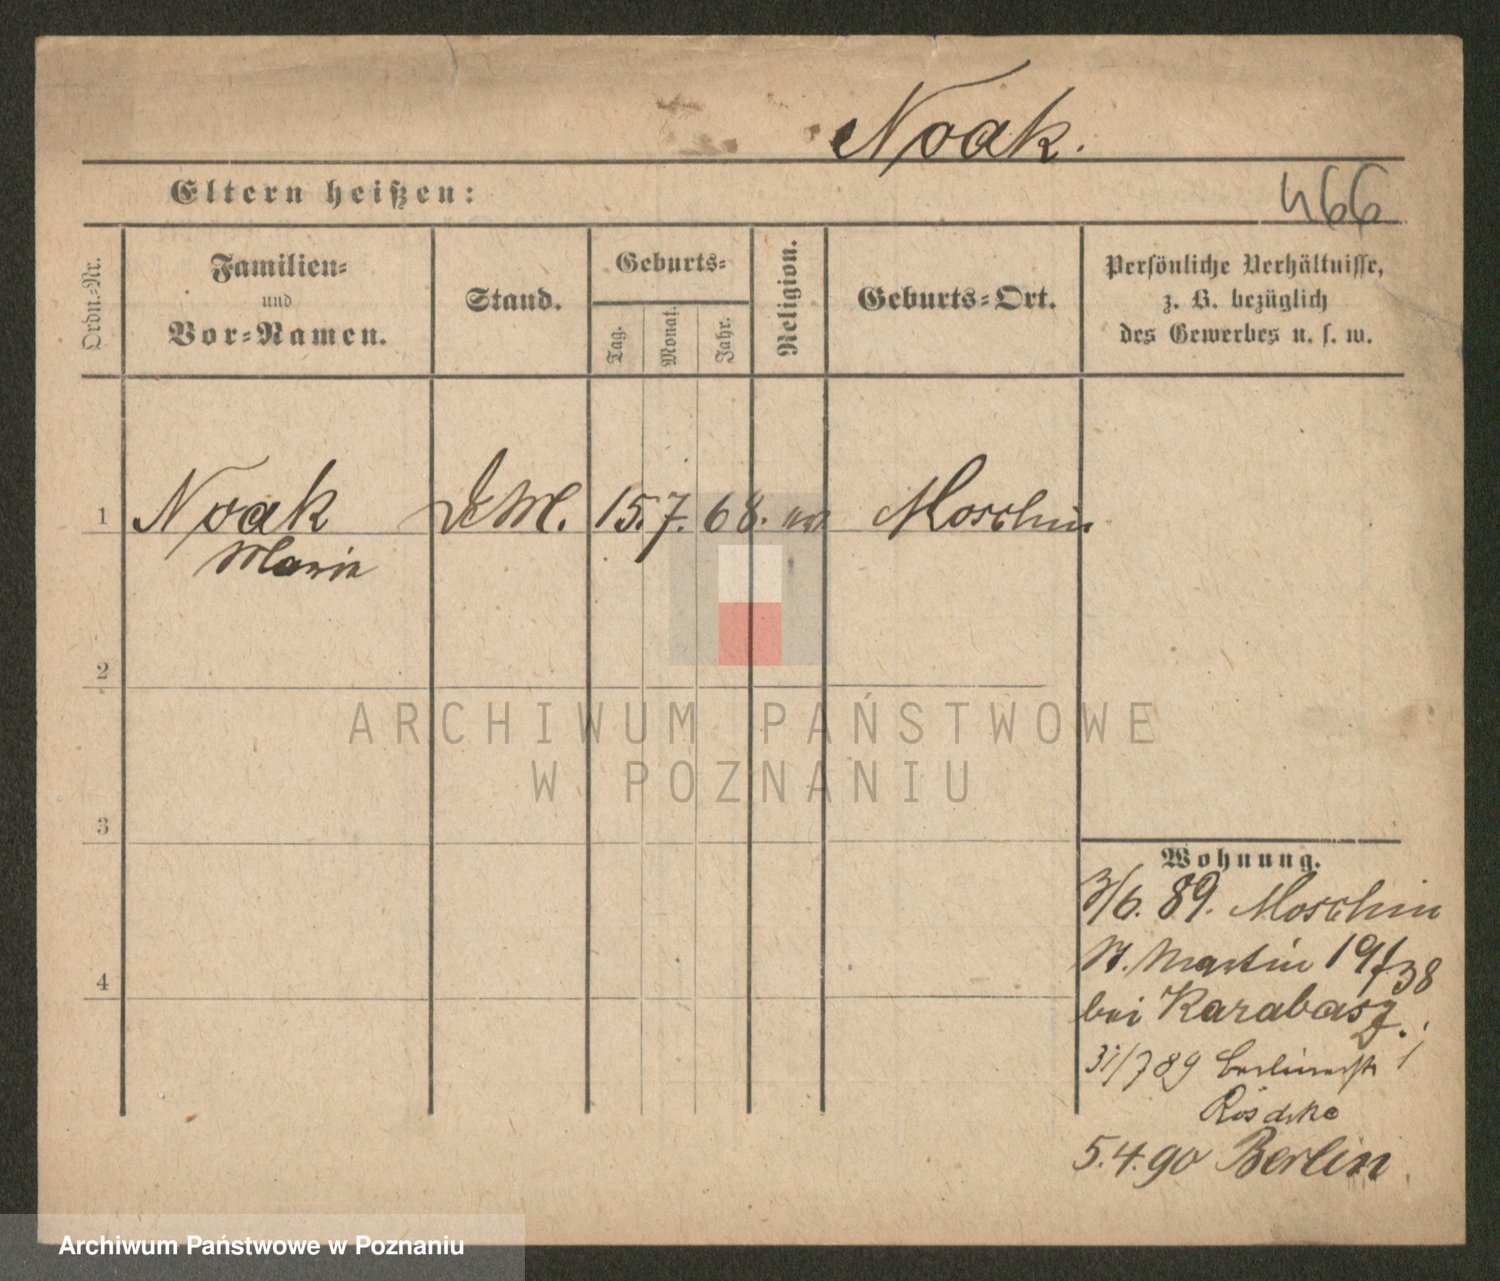 Noak.
Eltern heißen:
466
Ordn.-Nr.
Familien-
und
Vor-Namen.
Stand.
Geburts-
Tag.
Monat.
Jahr.
Religion.
Geburts-Ort.
Persönliche Verhältnisse,
z. B. bezüglich
des Gewerbes u. s. w.
1 Noak D. M. 15. 7. 68. ev Moschin
Marie
2
3
4
ARCHIWUM PAŃSTWOWE
W POZNANIU
Wohnung.
3/6. 89. Moschin
St. Martin 19/38
bei Karabasz.
31/7 89 Berlinerstr 1
5. 4. 90 Berlin
Archiwum Państwowe w Poznaniu